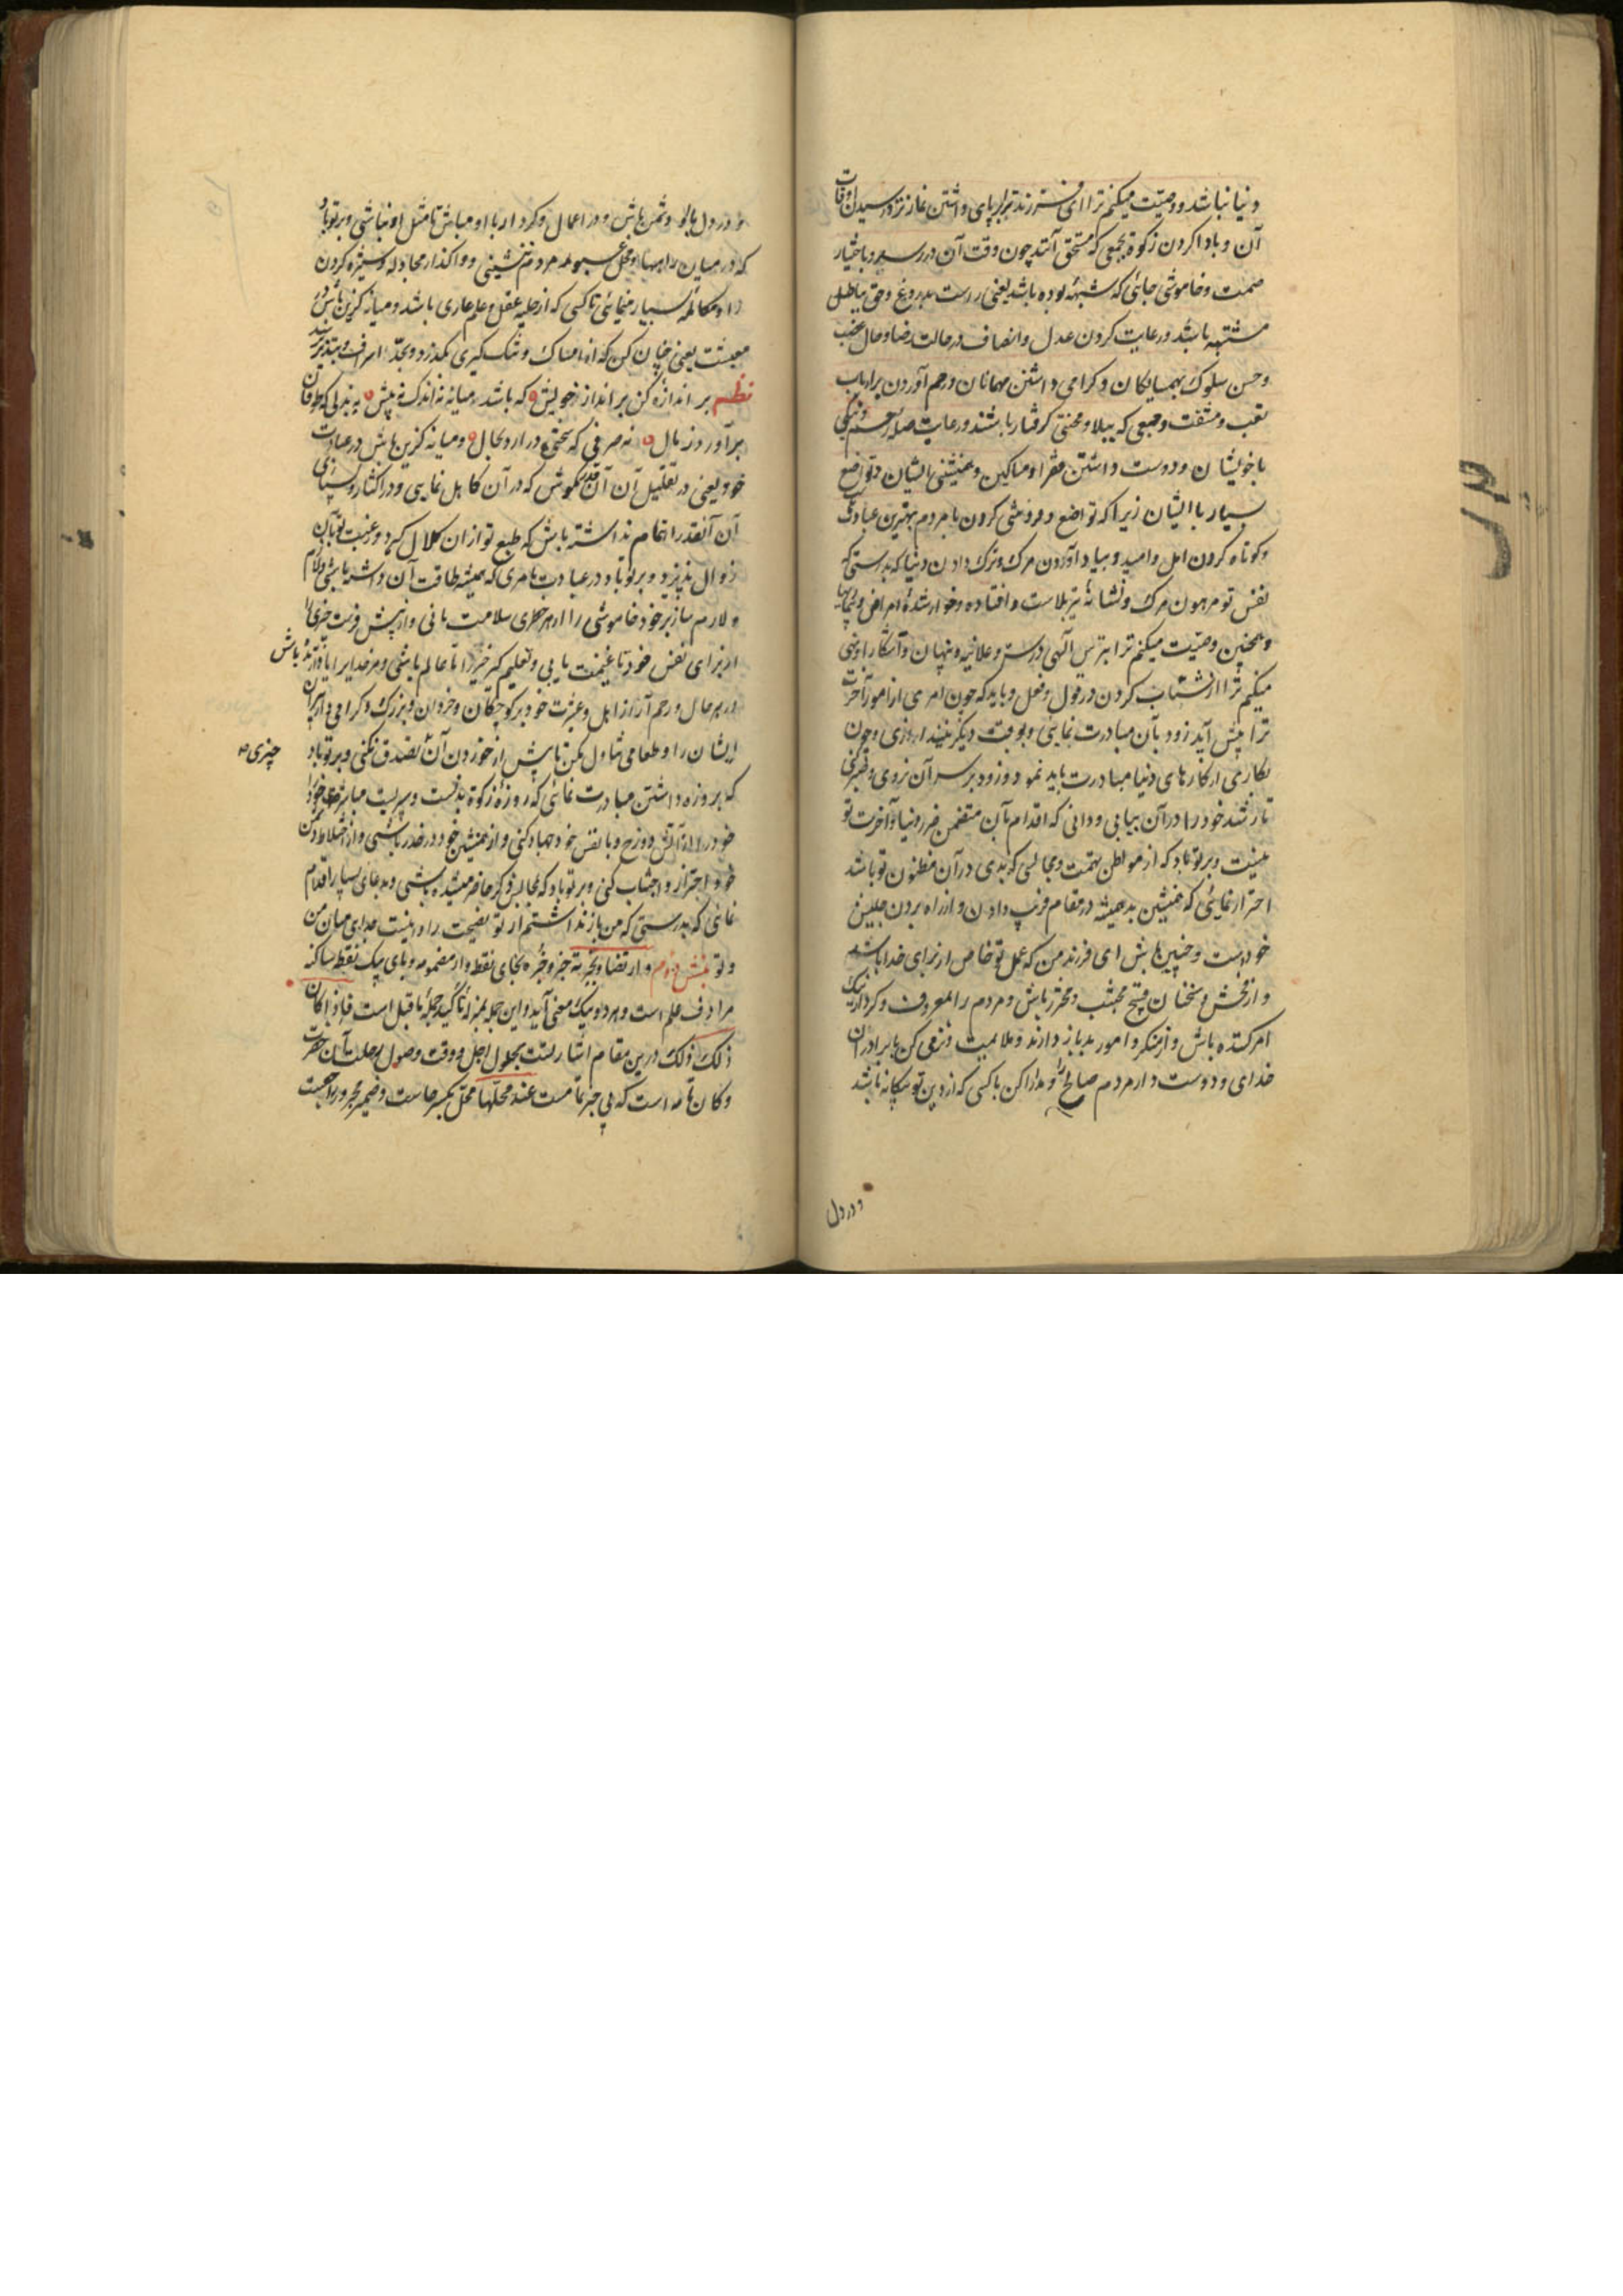 دنیا نباشد و وصیت میکنم ترا ای فرزند برپای داشتن نماز نزد رسیدن اوقات
آن و بادا کردن زکوة بجمعی که مستحق آنند چون وقت آن در رسد و باختیار
صمت و خاموشی جائی که شبهه بوده باشد یعنی راست بدروغ و حق بباطل
مشتبه باشد و رعایت کردن عدل و انصاف در حالت رضا و حال غضب
و حسن سلوک بهمسایکان و کرامی داشتن مهمانان و رحم آوردن بر ارباب
تعب و مشقت و جمعی که ببلا و محنتی کرفتار باشند و رعایت صله رحم و نیکی
با خویشان و دوست داشتن فقرا و مساکین و همنشینی بایشان و تواضع
بسیار با ایشان زیرا که تواضع و فروتنی کردن با مردم بهترین عبادتست
و کوتاه کردن امل و امید و بیاد آوردن مرک و ترک دادن دنیا که بدرستی که
نفس تو مرهون مرک و نشانهٔ تیر بلاست و افتاده و خوار شدهٔ امراض و بیماریها
و همچنین وصیت میکنم ترا بترس الهی در سر و علانیه و پنهان و آشکارا و نهی
میکنم ترا از شتاب کردن در قول و فعل و باید که چون امری از امور آخرت
ترا پیش آید زود بآن مبادرت نمائی و بوقت دیکر نیندازی و چون
بکاری از کارهای دنیا مبادرت باید نمود زود بر سر آن نروی و صبر کنی
تا رشد خود را در آن بیابی و دانی که اقدام بآن متضمن ضرر دنیا و آخرت تو
نیست و بر تو باد که از مواطن تهمت و مجالسی که بدی در آن مظنون تو باشد
احتراز نمائی که همنشین بد همیشه در مقام فریب دادن و از راه بردن جلیس
خودست و چنین باش ای فرزند من که عمل تو خاص از برای خدا باشد
و از فحش و سخنان قبیح مجتنب و محترز باش و مردم را بمعروف و کردار نیک
امر کننده باش و از منکر و امور بد باز دارنده و ملایمت و نرمی کن با برادران
خدای و دوست دار مردم صالح را و مدارا کن با کسی که از دین تو بیکانه باشد
و در دل
و در دل با او دشمن باش و در اعمال و کردار با او مباش تا مثل او نباشی و بر تو باد
که در میان راهها و محل عبور مردم ننشینی و واکذار مجادله و ستیزه کردن
را و مکالمه بسیار منمائی با کسی که از حلیه عقل و علم عاری باشد و میانه کزین باش در
معیشت یعنی چنان کن که از امساک و تنک کیری بکذرد و بحد اسراف و تبذیر نرسد
نظم بر اندازه کن بر انداز خویش که باشد میانه نه اندک نه بیش نه بذلی که طوفان
برآورد ز مال نه صرفی که سختی در آرد بحال و میانه کزین باش در عبادت
خود یعنی در تقلیل آن آن قدر مکوش که در آن کاهل نمایی و در اکثار و بسیاری
آن آنقدر اهتمام نداشته باش که طبع تو از ان کلال کیرد و رغبت تو بآن
زوال پذیرد و بر تو باد در عبادت بامری که همیشه طاقت آن داشته باشی و لازم
و لازم ساز بر خود خاموشی را از هر خطری سلامت مانی و از پیش فرست چیزی را
از برای نفس خود تا غنیمت یابی و تعلیم کیر خیر را تا عالم باشی و مر خدایرا یاد آرنده باش
در هر حال و رحم آر از اهل و عترت خود بر کوچکان و خردان و بزرک و کرامی دار پیران
ایشان را و طعامی تناول مکن تا پیش از خوردن آن تصدق نکنی و بر تو باد
چیزی صح
که بروزه داشتن مبادرت نمائی که روزه زکوة بدنست و سپریست مر روزه دار خود را
خود را از آتش دوزخ و با نفس خود جهاد کنی و از همنشین خود در حذر باشی و از اختلاط دشمن
خود احتراز و اجتناب کنی و بر تو باد که بمجالس ذکر حاضر میشده باشی و دعای بسیار اقدام
نمائی که بدرستی که من باز نداشتم از تو نصیحت را و اینست جدائی میان من
و تو بخش دوم و ارتضا و خبر به خبر و خبره بخای نقطه دار مضمومه و بای یک نقطه ساکنه
مرادف علم است و هر دو بیک معنی آید و این جمله بمنزلهٔ تاکید جملهٔ ماقبل است فاذا کان
ذلک ذلک درین مقام اشارتست بحلول اجل و وقت وصول رحلت آن حضرت
و کان تامه است که بی خبر تمامست عند محلها محل بکسر حاست و ضمیر مجرور راجعست